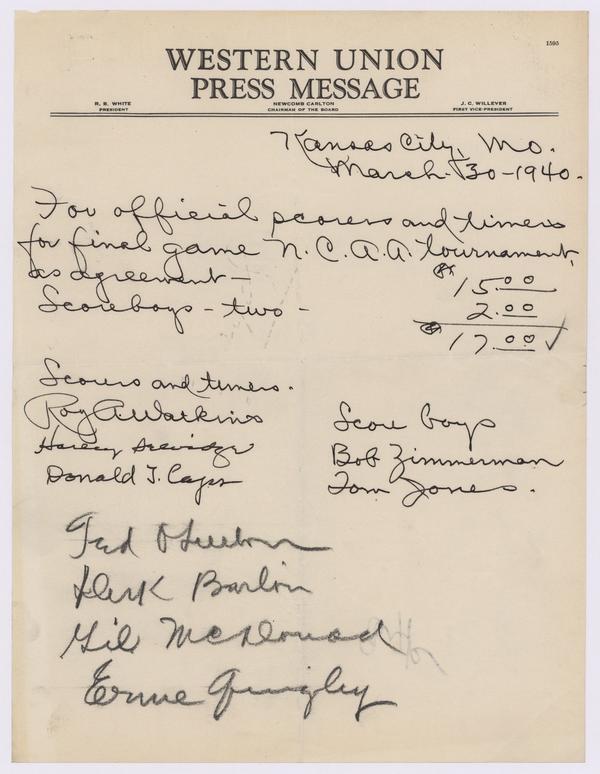 1595
WESTERN UNION
PRESS MESSAGE
R. B. WHITE
PRESIDENT
NEWCOMB CARLTON
CHAIRMAN OF THE BOARD
J. C. WILLEVER
FIRST VICE-PRESIDENT
Kansas City, Mo.
March-30-1940.
For official scorers and timers
for final game N.C.A.A. tournament,
as agreement - 15.00
Scoreboys - two - 2.00
17.00 ✓
Scorers and timers.
Roy A Watkins
Harley Selvidge
Donald J. Caps
Score boys
Bob Zimmerman
Tom Jones.
Ted O'Sullivan
Barlin
Gil McDonald
Ernie Quigley